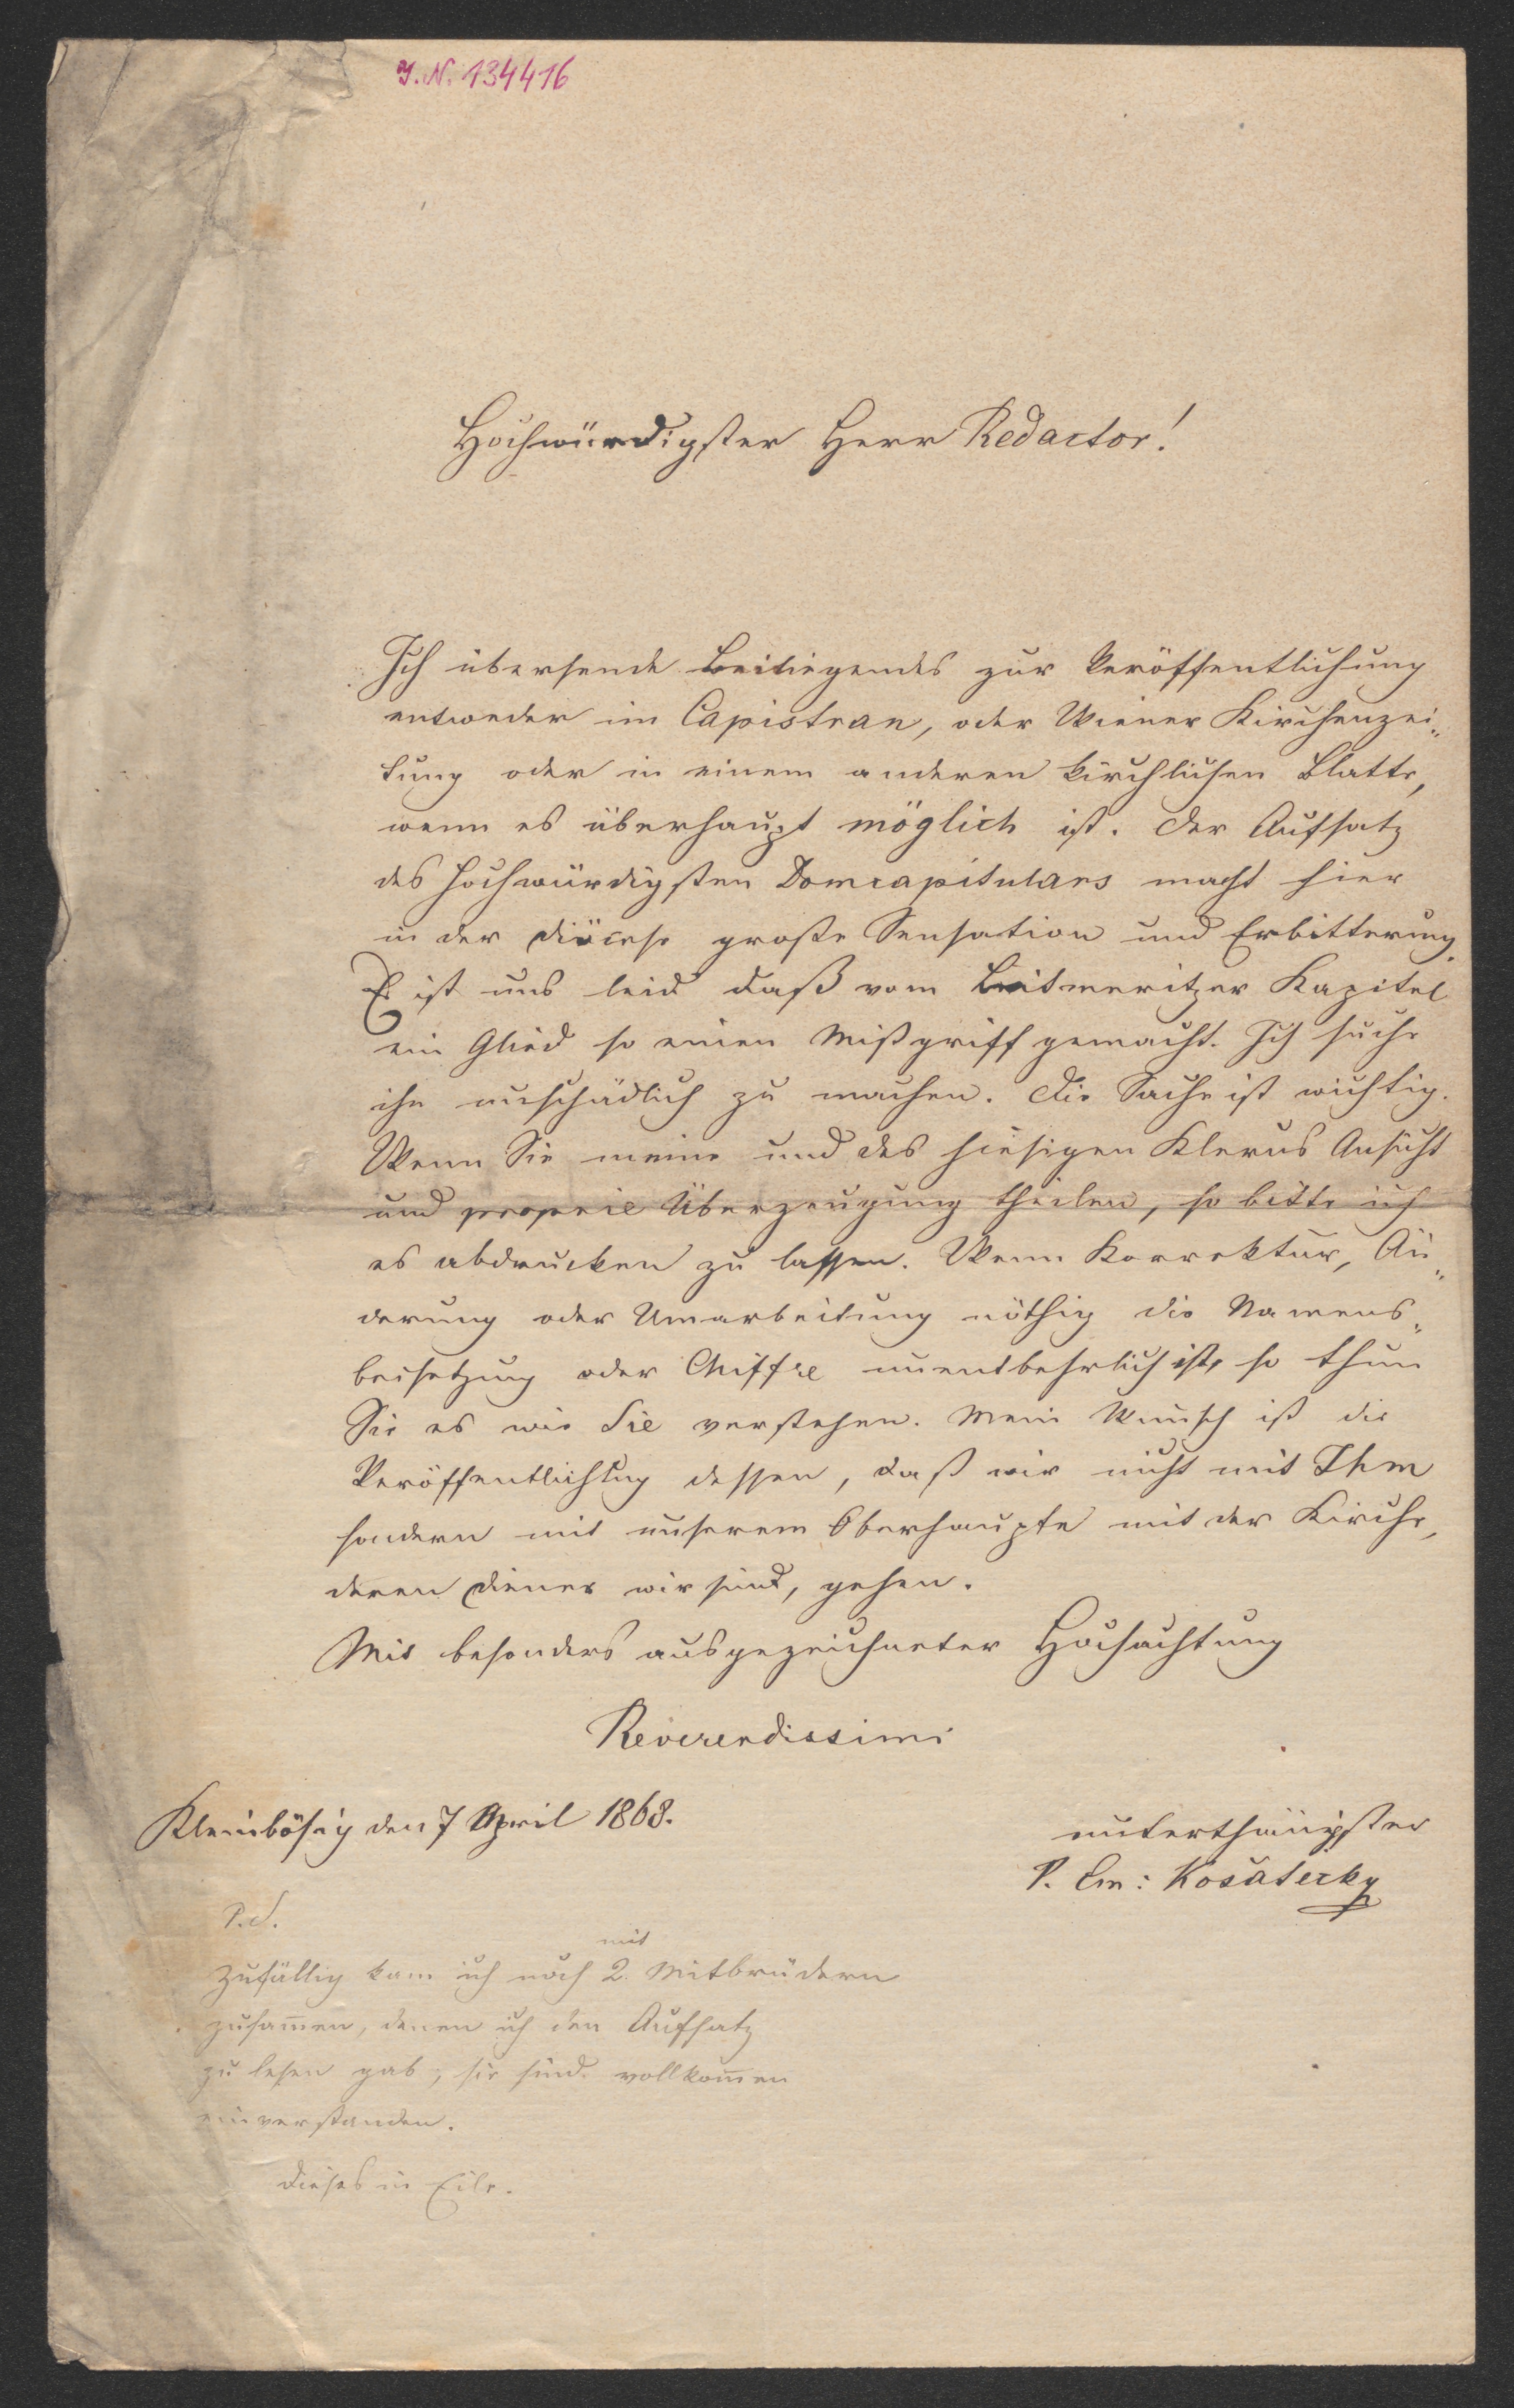 J.N. 134416
Hochwürdigster Herr Redactor!
Ich übersende Beiliegendes zur Veröffentlichung
entweder im Capistran, oder Wiener Kirchenzei„
tung oder in einem anderen kirchlichen Blatte,
wenn es überhaupt möglich ist. Der Aufsatz
des hochwürdigsten Domcapitulars macht hier
in der Diöcese große Sensation und Erbitterung.
Es ist uns leid daß vom Leitmeritzer Kapitel
ein Glied so einen Mißgriff gemacht. Ich suche
ihn unschädlich zu machen. Die Sache ist wichtig.
Wenn Sie meine und des hiesigen Klerus Ansicht
und Überzeugung theilen, so bitte ich
es abdrucken zu lassen. Wenn Korrektur, Än„
derung oder Umarbeitung nöthig die Namens„
beisetzung oder Chiffre unentbehrlich ist, so thun
Sie es wie Sie verstehen. Mein Wunsch ist die
Veröffentlichung dessen, daß wir nicht mit Ihm
sondern mit unserem Oberhaupte mit der Kirche,
deren Diener wir sind, gehen.
Mit besonders ausgezeichneter Hochachtung
Reverendissimi
Kleinbösig den 7 April 1868.
unterthänigster
P. Em: Košátecky
P.S.
mit
Zufällig kam ich noch 2. Mitbrüdern
zusam̅en, denen ich den Aufsatz
zu lesen gab, sie sind vollkom̅en
einverstanden.
Dieses in Eile.